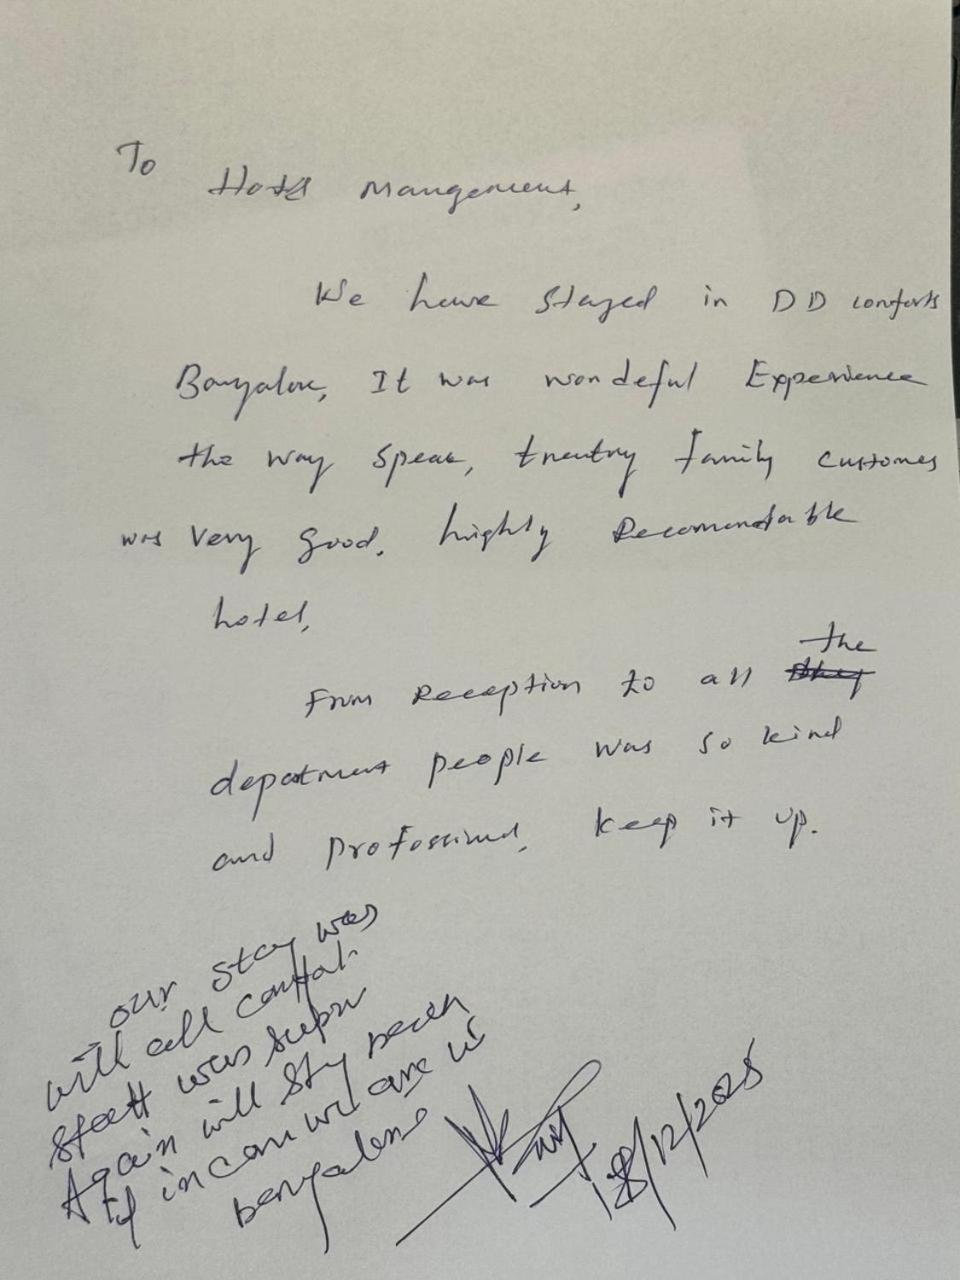 To
Hotel Mangement,
We have stayed in DD comforts
Bangalore, It was wondeful Experience
the way speak, treating family customes
was very good. highly Recomendable
hotel,
From Reception to all the
department people was so kind
and professional, keep it up.
our stay was
with all comfot.
staff was supr
Again will stay
If in case we are in
bangalore
18/12/2025